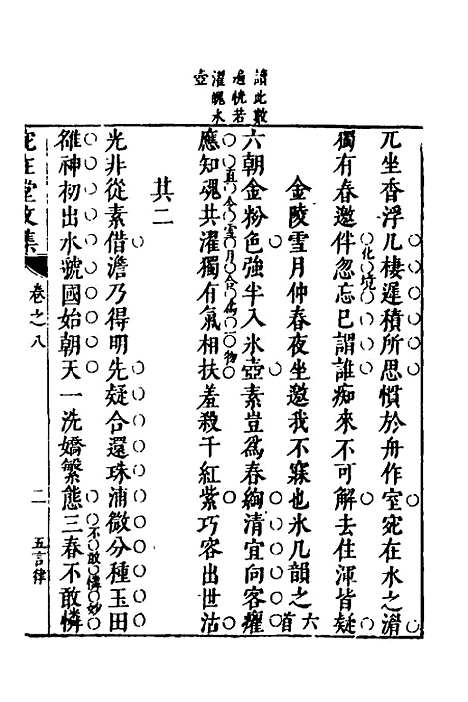 讀此數
過恍若
濯魄冰
壺
兀坐香浮几棲遲積所思慣於舟作室宛在水之湄
獨有春邀伴忽忘已謂誰痴來不可解去住渾皆疑
化境
金陵雪月仲春夜坐邀我不寐也氷几韻之六首
六朝金粉色強半入氷壺素豈為春絢清宜向客癯
應知魂共濯獨有氣相扶羞殺千紅紫巧容出世沽
直令雪月合為一物
其二
光非從素借澹乃得明先疑合還珠浦微分種玉田
雒神初出水虢國始朝天一洗嬌繁態三春不敢憐
不敢憐妙
宛在堂文集
卷之八
二
五言律